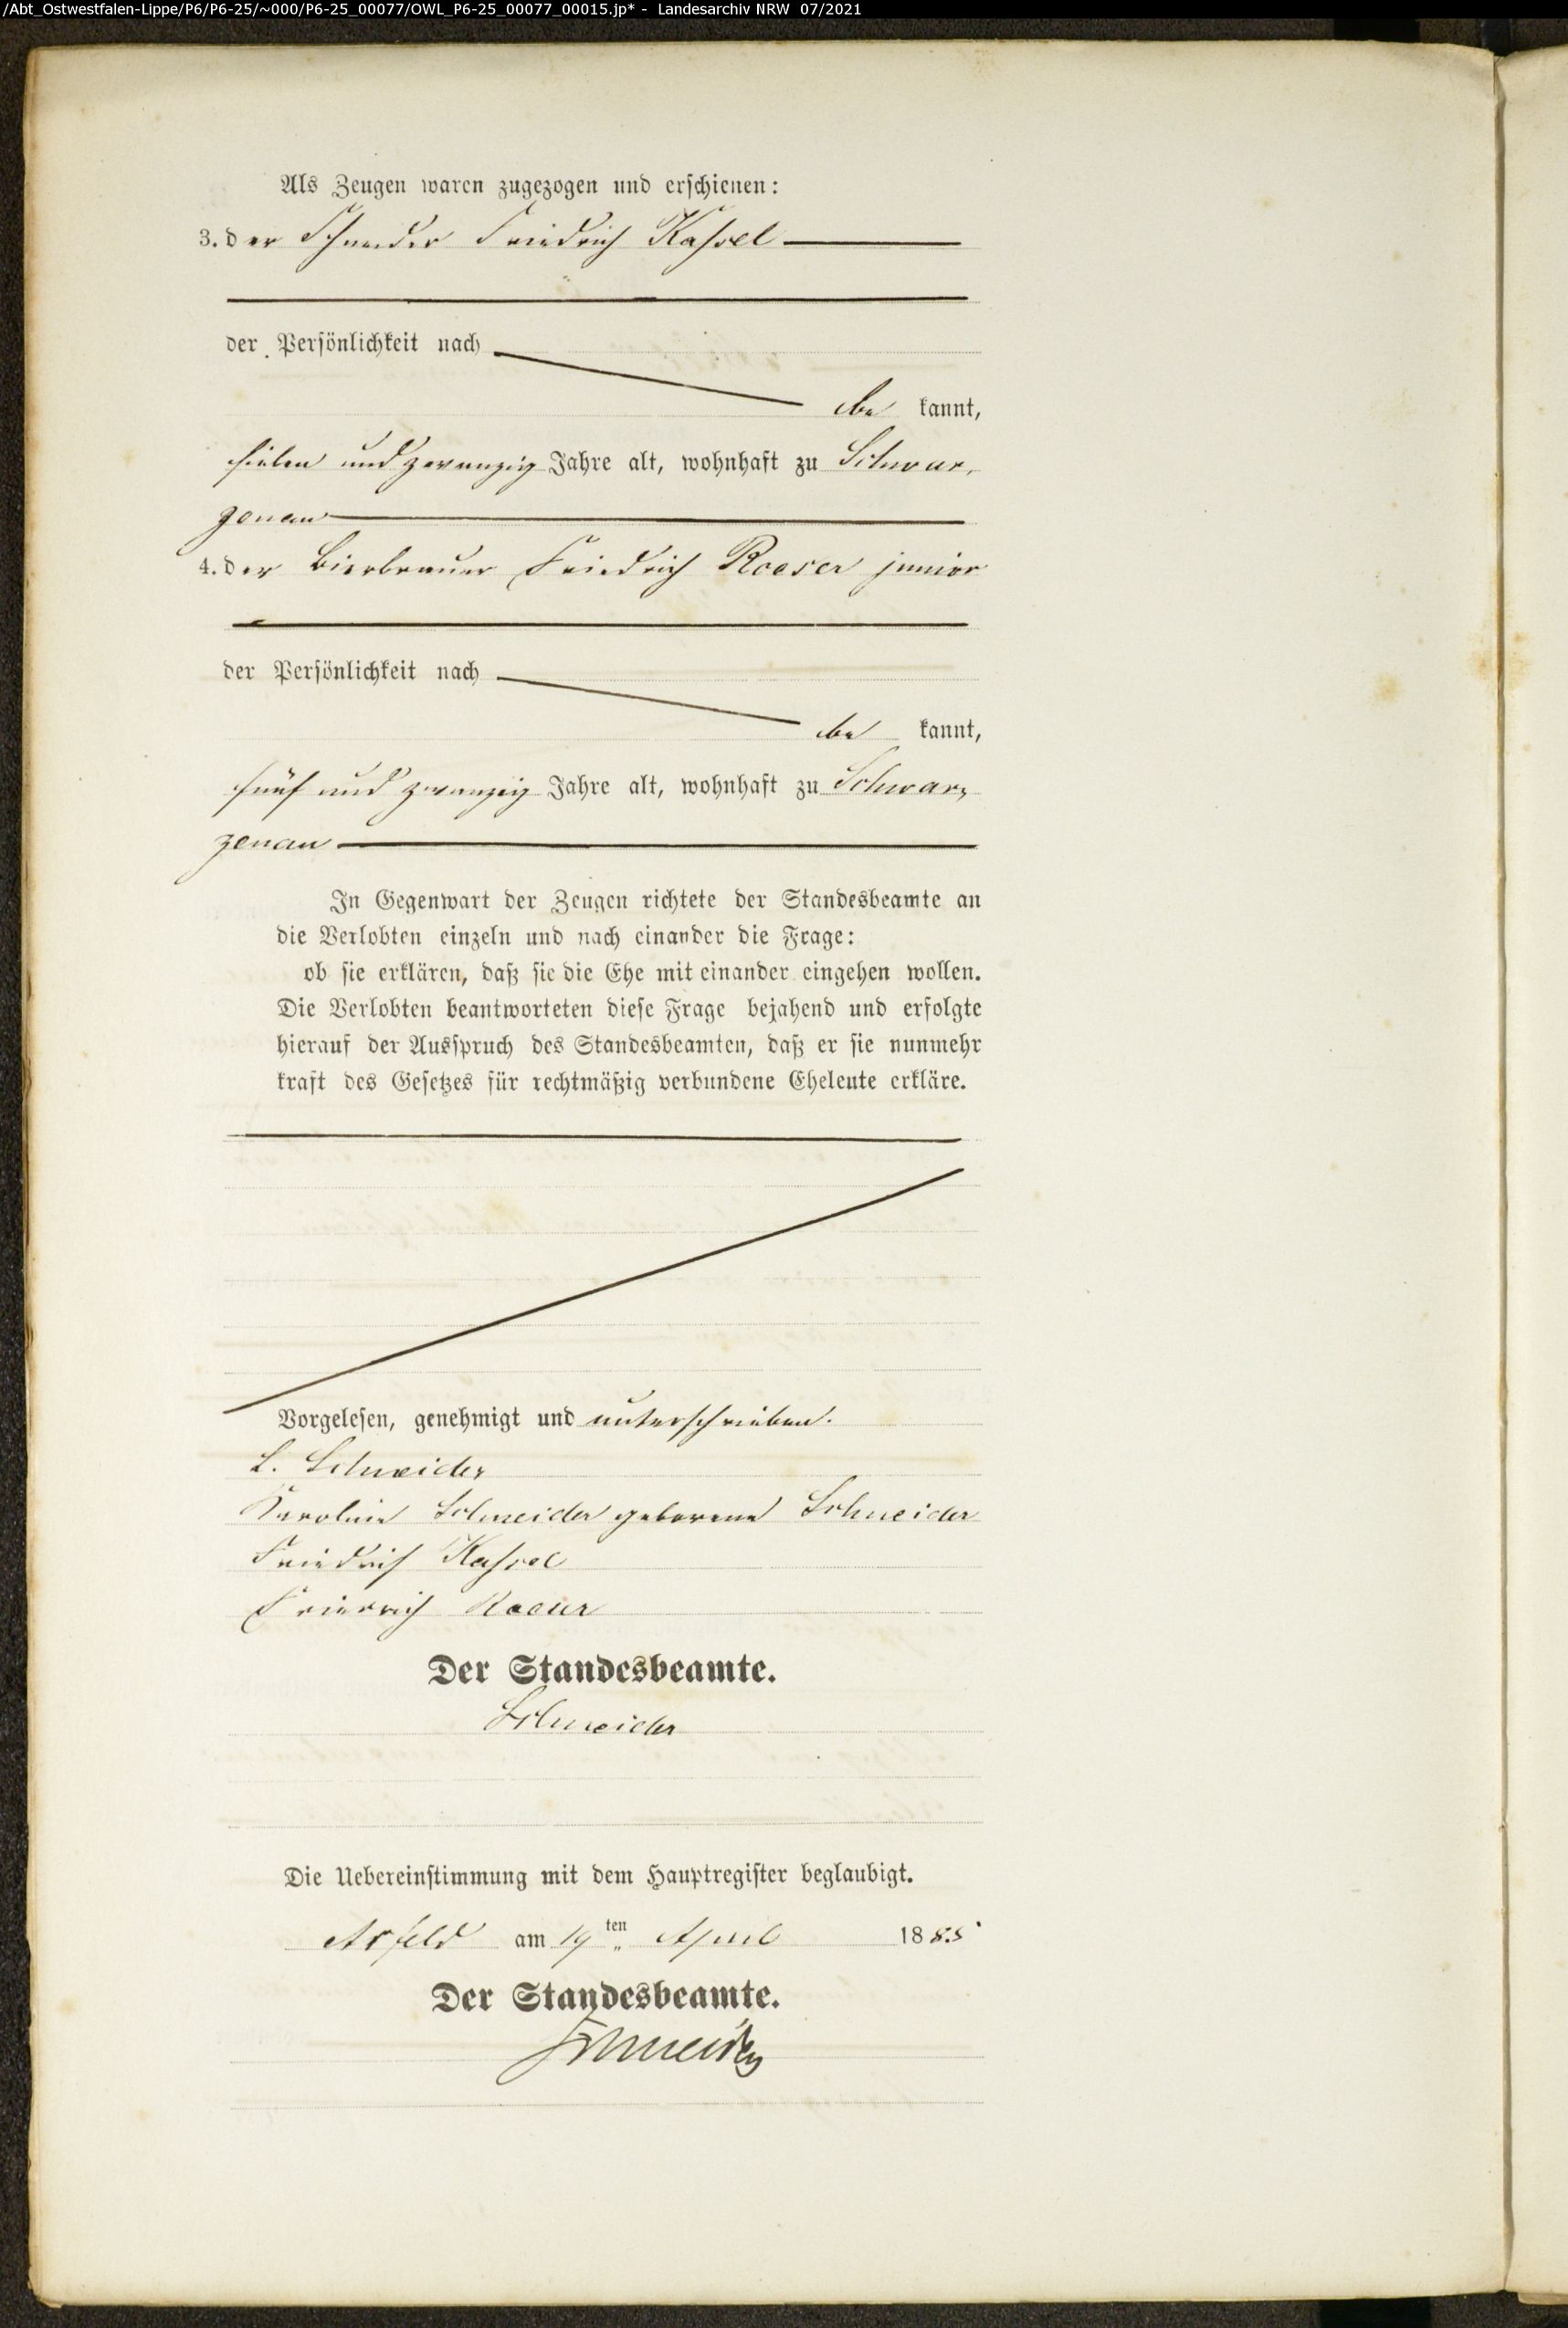 /Abt_Ostwestfalen-Lippe/P6/P6-25/~000/P6-25_00077/OWL_P6-25_00077_00015.jp* - Landesarchiv NRW 07/2021
Als Zeugen waren zugezogen und erschienen:
3. der Schneider Friedrich Kassel
der Persönlichkeit nach
be kannt,
sieben und zwanzig Jahre alt, wohnhaft zu Schwar,
zenau
4. der Bierbrauer Friedrich Roeser junior
der Persönlichkeit nach
be kannt,
fünf und zwanzig Jahre alt, wohnhaft zu Schwar,
zenau
In Gegenwart der Zeugen richtete der Standesbeamte an
die Verlobten einzeln und nach einander die Frage:
ob sie erklären, daß sie die Ehe mit einander eingehen wollen.
Die Verlobten beantworteten diese Frage bejahend und erfolgte
hierauf der Ausspruch des Standesbeamten, daß er sie nunmehr
kraft des Gesetzes für rechtmäßig verbundene Eheleute erkläre.
Vorgelesen, genehmigt und unterschrieben.
L. Schneider
Karoline Schneider geborene Schneider
Friedrich Kassel
Friedrich Roeser
Der Standesbeamte.
Schneider
Die Uebereinstimmung mit dem Hauptregister beglaubigt.
Arfeld am 19ten April 1885
Der Standesbeamte.
Schneider